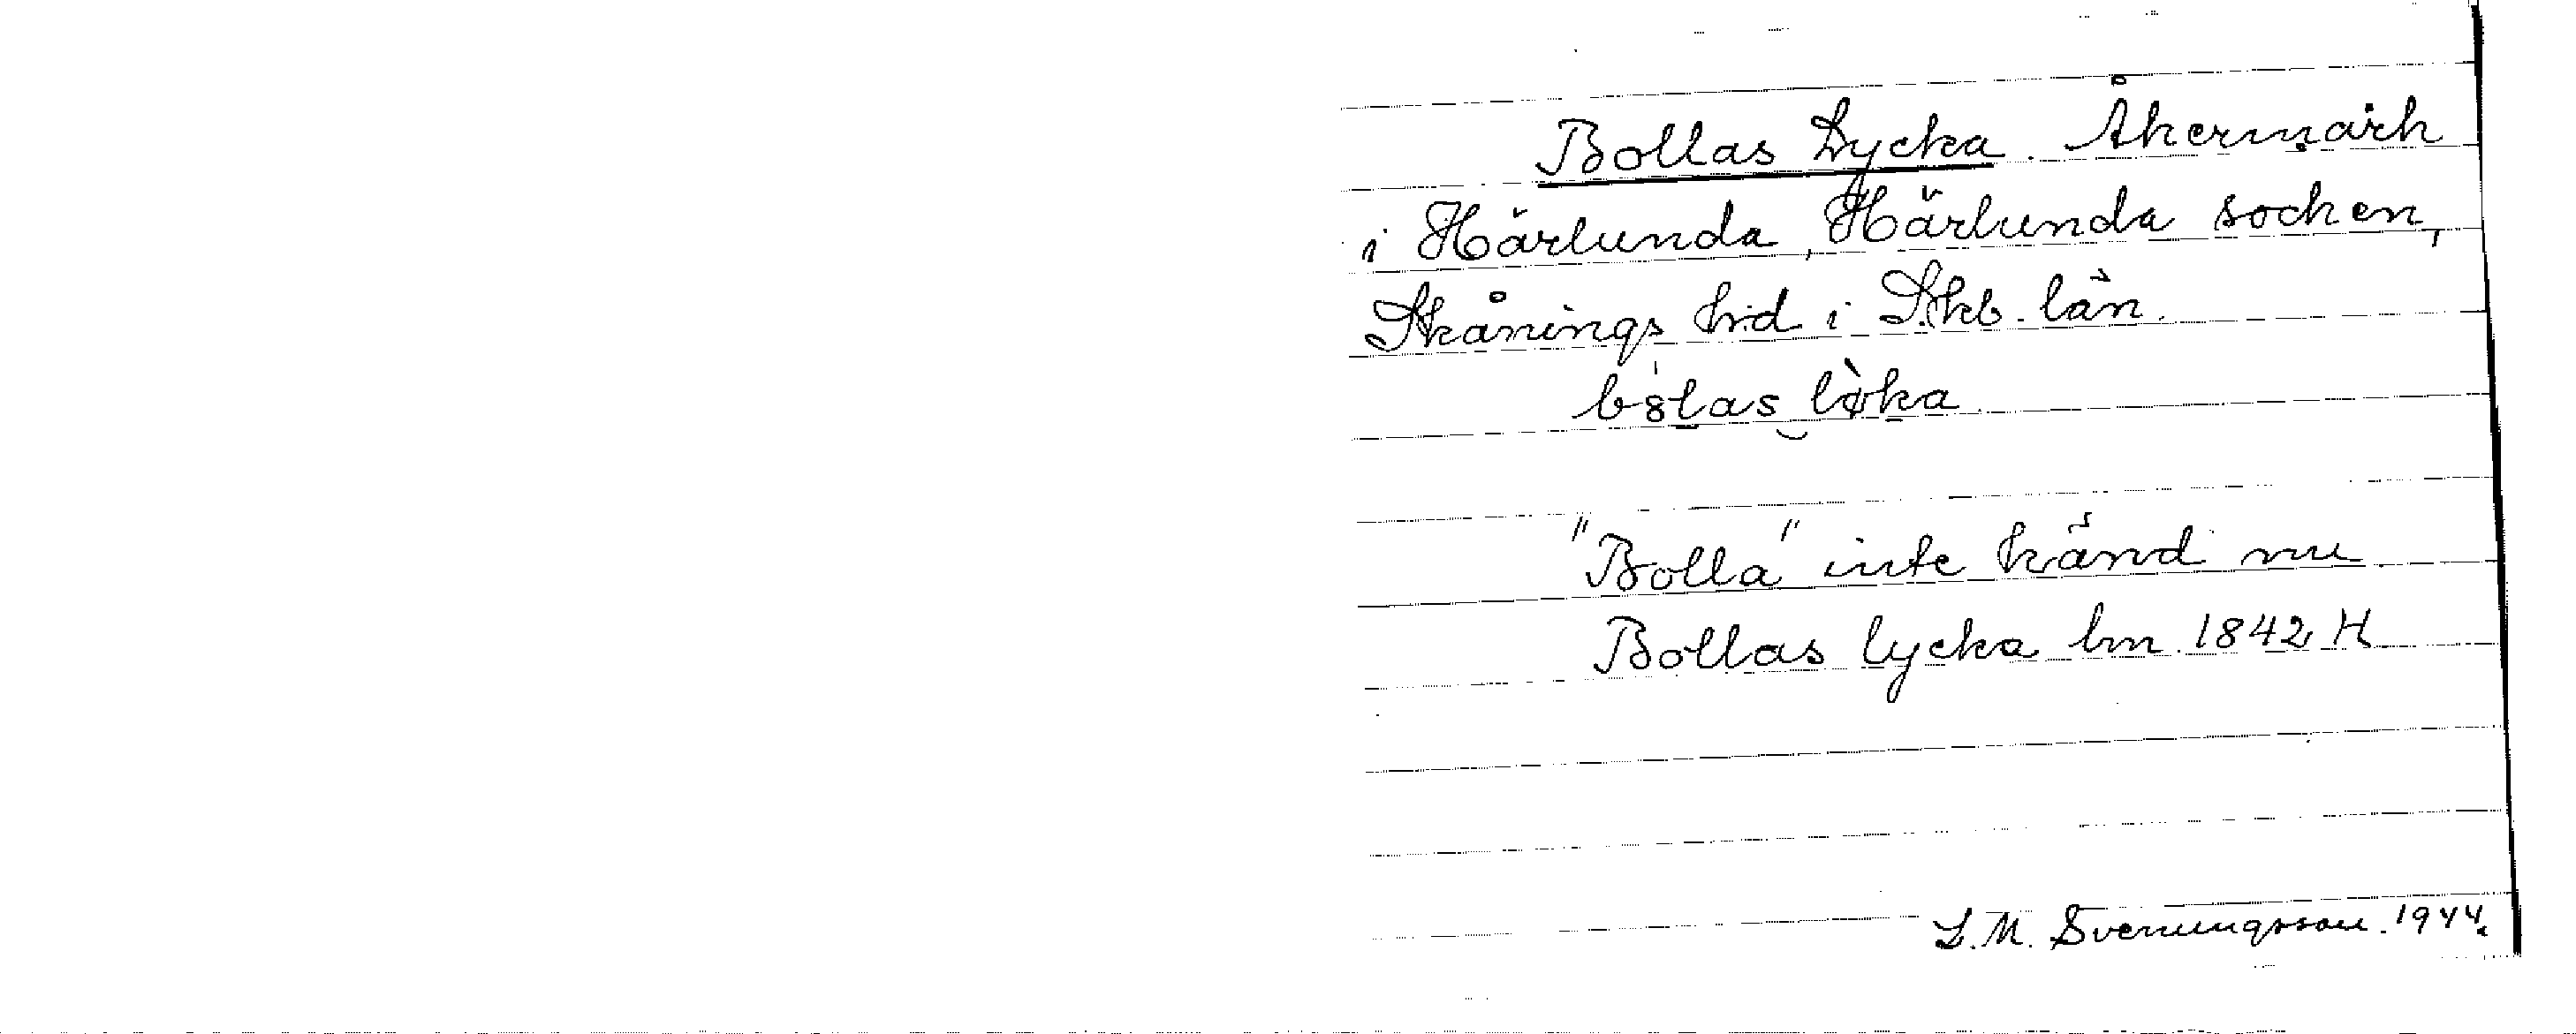 Bollas Lycka. Åkermark
i Härlunda, Härlunda socken,
Skånings hd i Skb. län.
bolas løka
"Bolla" inte känd nu
Bollas lycka lm 1842 H
L. M. Svenungsson. 1944.